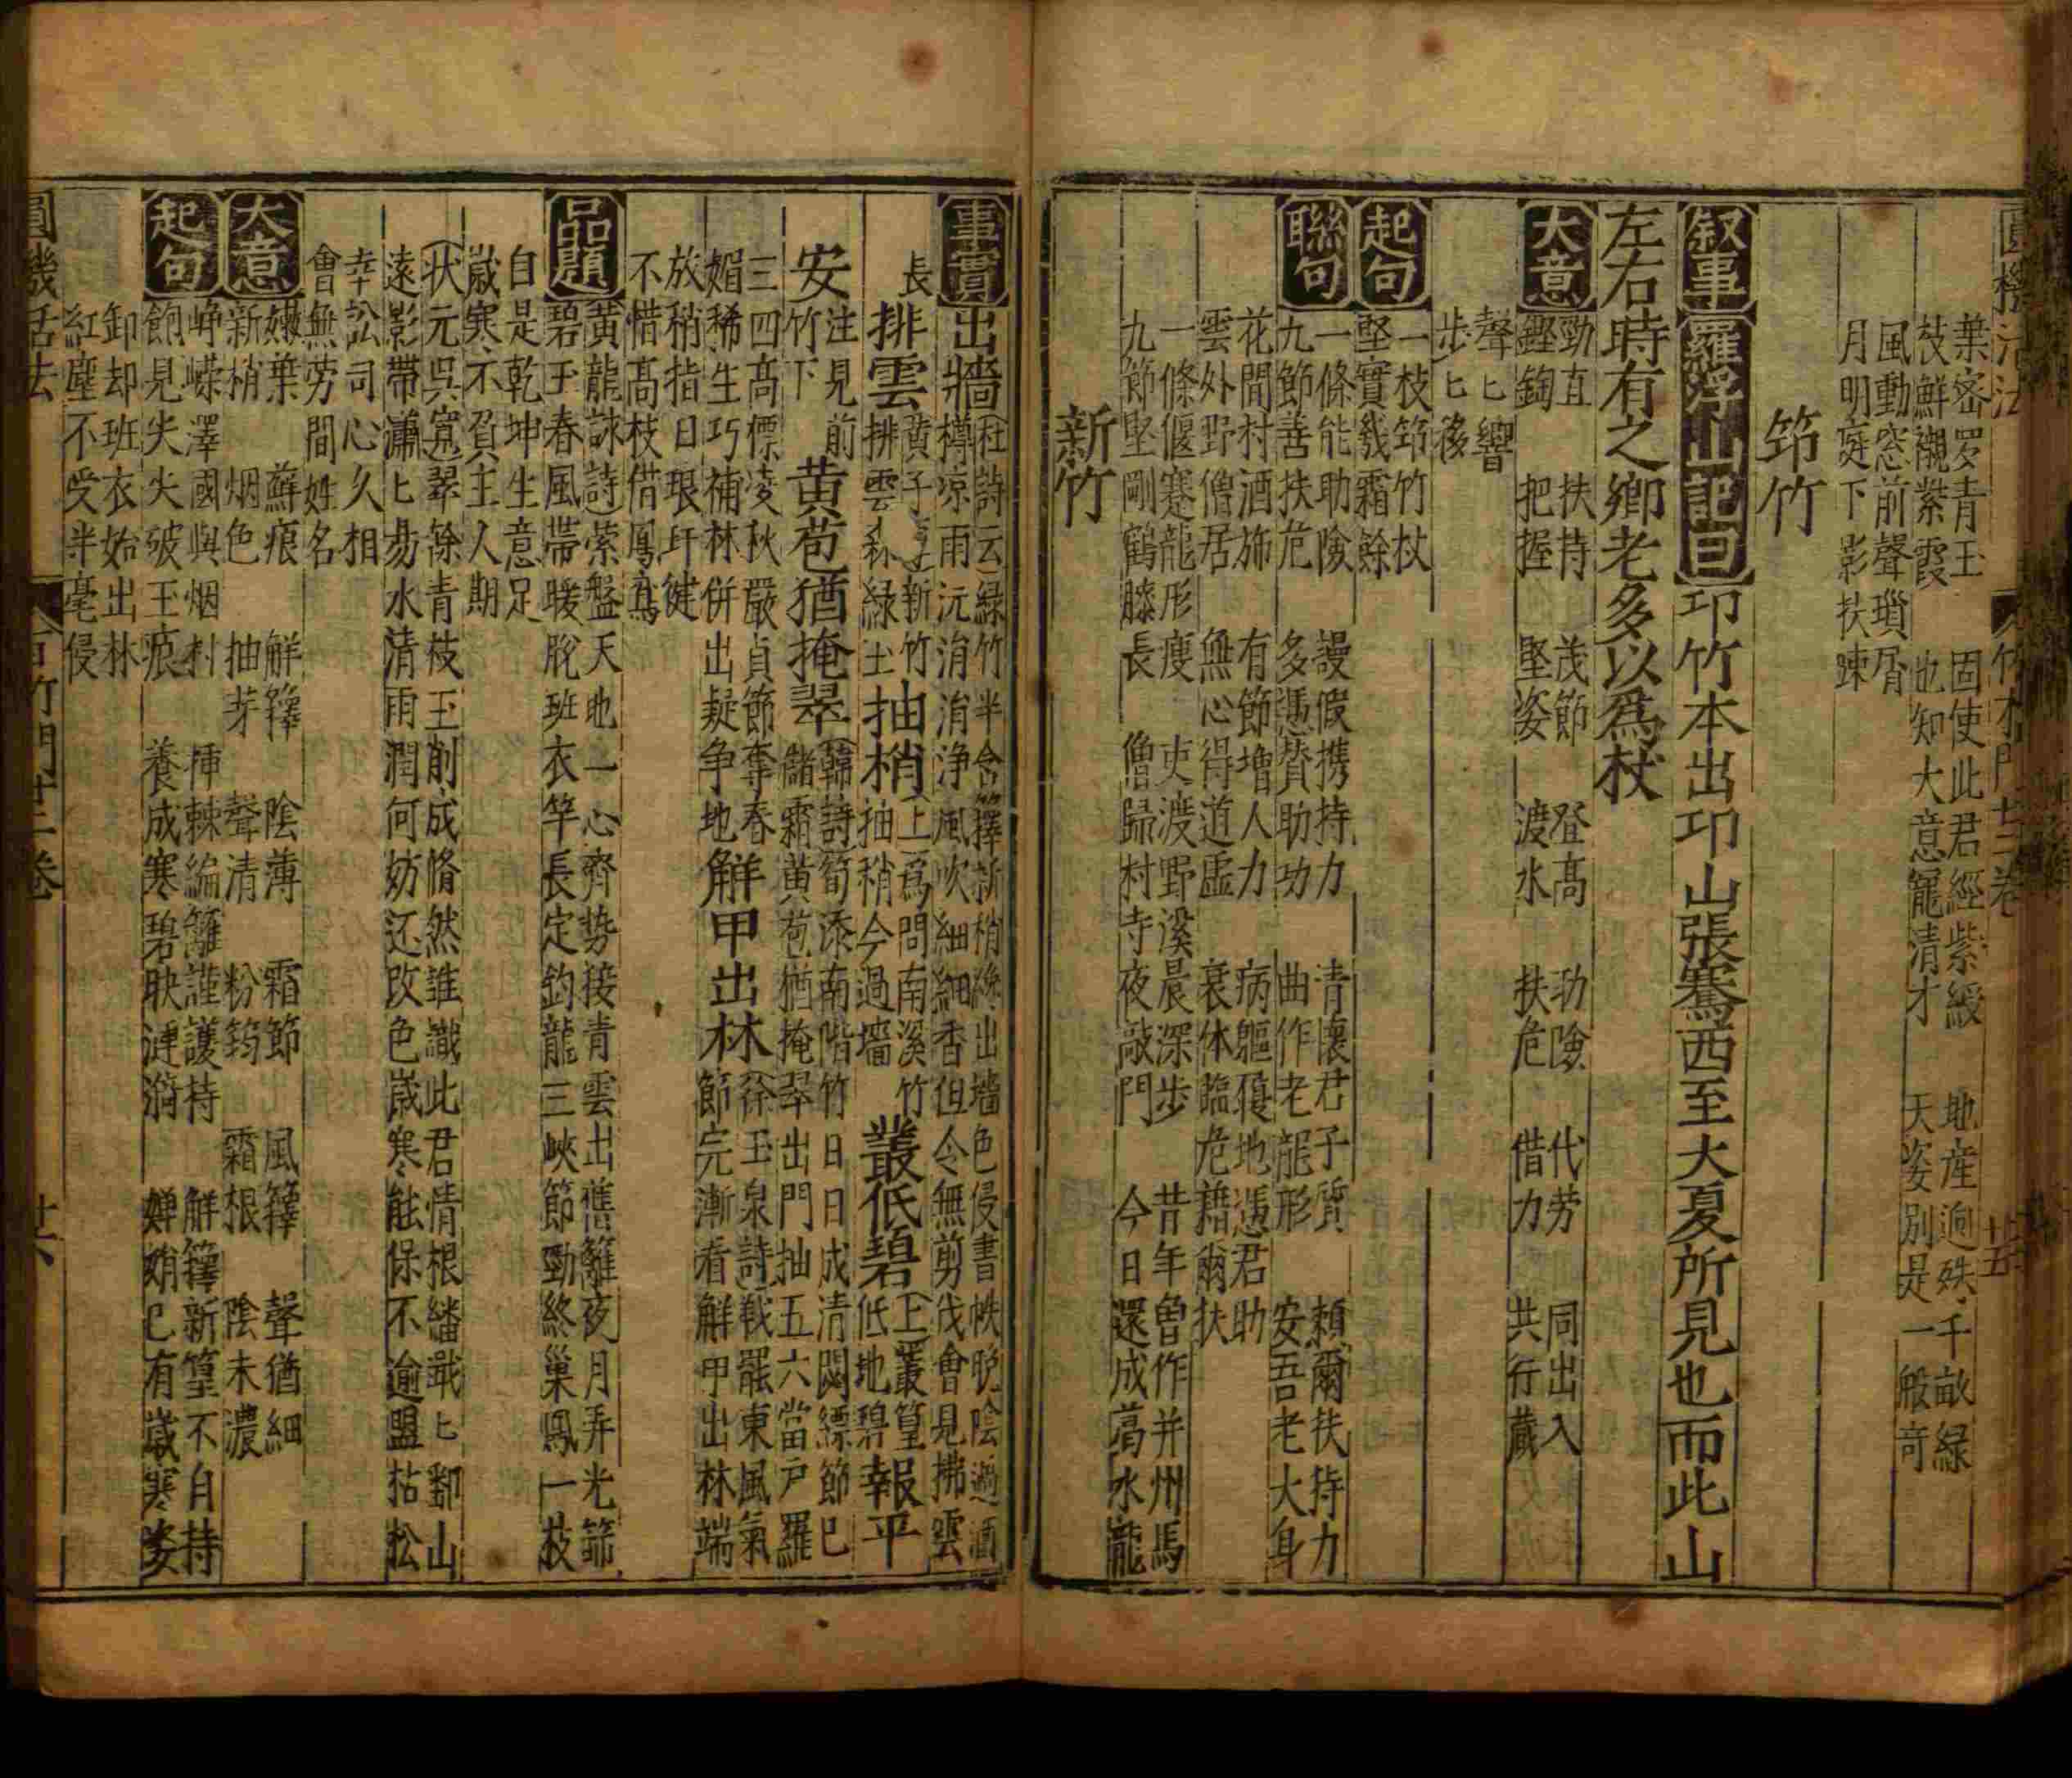 圓機活法 竹木門廿二卷 廿五
葉密罗青玉 固使此君經紫綬 地産逈殊千畝緑
枝鮮襯紫霞 也知大意寵清才 天姿別是一般奇
風動窓前聲瑣屑
月明庭下影扶踈
筇竹
叙事 羅浮山記曰 卭竹本出卭山張騫西至大夏所見也而此山
左右時有之鄉老多以爲杖
大意 勁直 扶持 茂節 登高 功險 代劳 同出入
鏗鍧 把握 堅姿 渡水 扶危 借力 共行蔵
聲匕響
步匕移
起句 一枝筇竹杖
堅實幾霜餘
聯句 一條能助險 謾假携持力 青懷君子質 頼爾扶持力
九節善扶危 多憑賛助功 曲作老龍形 安吾老大身
花間村酒斾 有節增人力 病軀獲地憑君助
雲外野僧居 無心得道虛 衰休臨危藉爾扶
一條偃蹇龍形瘦 吏渡野溪晨深步 昔年曾作并州馬
九節堅剛鶴膝長 僧歸村寺夜敲門 今日還成葛水龍
新竹
事實 出牆 杜詩云緑竹半含籜新梢纔出墻色侵書帙晚陰過酒
樽凉雨沅涓涓浄風吹細細香但令無剪伐會見拂雲
長 排雲 黄子 新竹 排雲 緑玉 抽梢 上爲問南溪竹抽稍今過墻 叢低碧 上叢篁低地碧 報平
安 注見前竹下 黄苞猶掩翠 韓詩筍添南階竹日日成清閟縹節已
儲霜黄苞猶掩翠出門抽五六當户羅
三四高慓凌秋嚴貞節奪春
媚稀生巧補林併出疑争地 解甲出林 徐玉泉詩戰罷東風氣
節完漸看解甲出林端
放稍指日珢玕健
不惜高枝借鳳鸞
品題 黄龍詠詩 縈盤天地一心齊势接青雲出舊籬夜月弄光篩
碧玉春風帶暖脫班衣竿長定釣龍三峽節勁終巢鳳一枝
自是乾坤生意足
嵗寒不負主人期
状元吳寬 翠餘青枝玉削成翛然誰識此君情根繙戢匕鄞山
遠影帶瀟匕易水清雨潤何妨还改色嵗寒能保不逾盟拈松
幸訟司心久相
會無劳間姓名
大意 嫩葉 蘚痕 解籜 陰薄 霜節 風籜 聲猶細
新梢 烟色 抽芽 聲清 粉筠 霜根 陰未濃
起句 峥嶸澤國與烟村 挿棘編籬謹護持 解籜新篁不自持
餉見失失破玉痕 養成寒碧映漣漪 嬋娟已有嵗寒姿
卸却班衣始出林
紅塵不受半毫侵
圓機活法 百竹門廿二卷 廿六